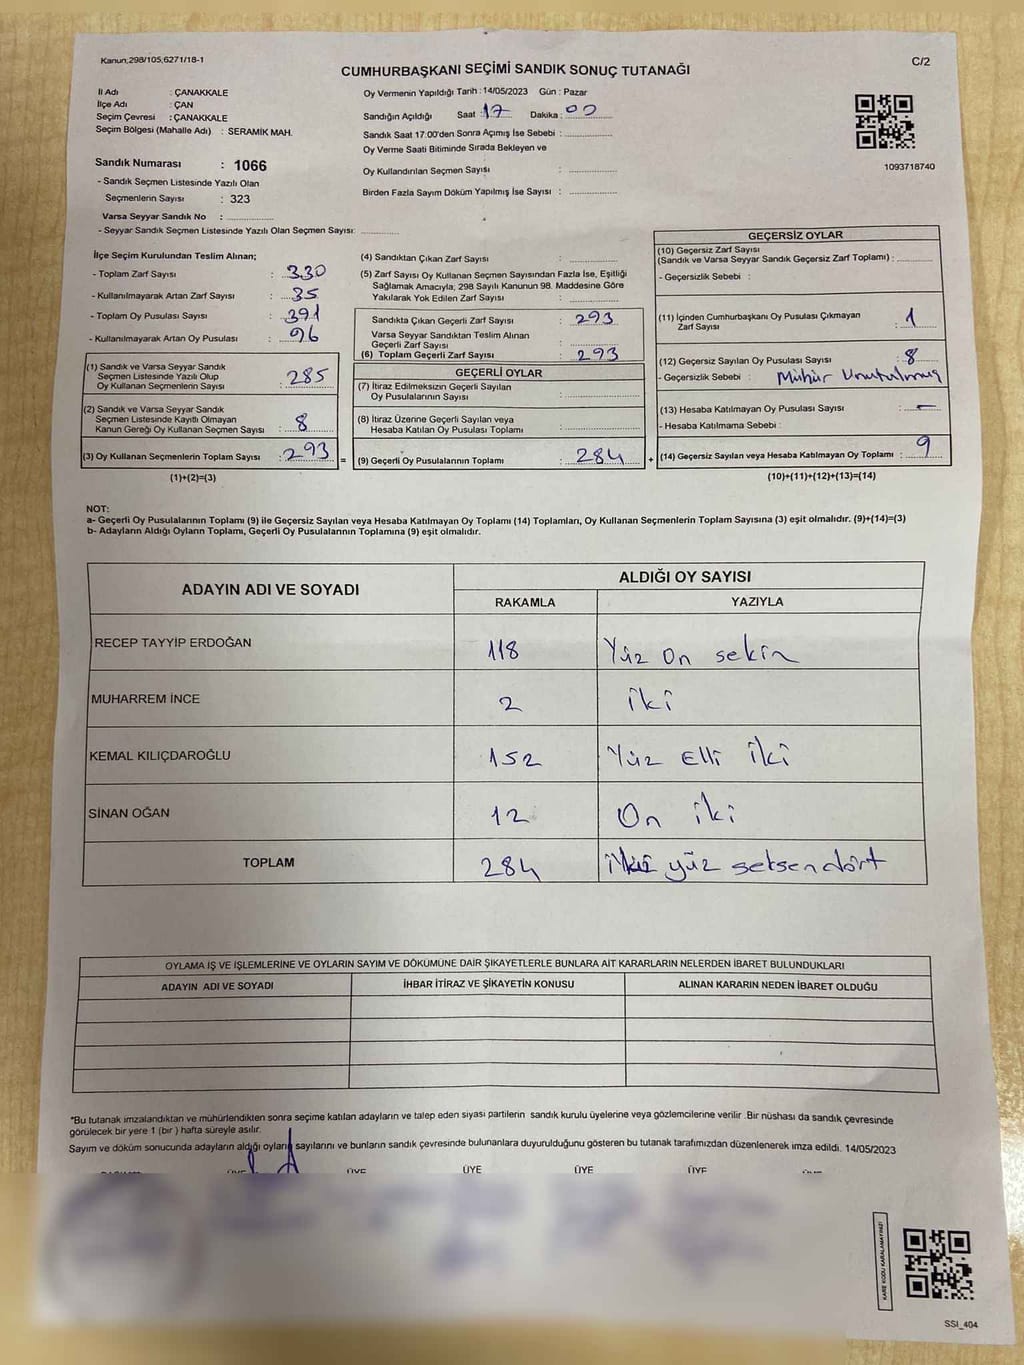 Kanun;298/105;6271/18-1
C/2
CUMHURBAŞKANI SEÇİMİ SANDIK SONUÇ TUTANAĞI
İl Adı : ÇANAKKALE
İlçe Adı : ÇAN
Seçim Çevresi : ÇANAKKALE
Seçim Bölgesi (Mahalle Adı) : SERAMİK MAH.
Sandık Numarası : 1066
- Sandık Seçmen Listesinde Yazılı Olan
Seçmenlerin Sayısı : 323
Varsa Seyyar Sandık No :
- Seyyar Sandık Seçmen Listesinde Yazılı Olan Seçmen Sayısı:
Oy Vermenin Yapıldığı Tarih : 14/05/2023 Gün : Pazar
Sandığın Açıldığı Saat : 17 Dakika : 00
Sandık Saat 17.00'den Sonra Açımış İse Sebebi :
Oy Verme Saati Bitiminde Sırada Bekleyen ve
Oy Kullandırılan Seçmen Sayısı :
Birden Fazla Sayım Döküm Yapılmış İse Sayısı :
1093718740
İlçe Seçim Kurulundan Teslim Alınan;
- Toplam Zarf Sayısı : 330
- Kullanılmayarak Artan Zarf Sayısı : 35
- Toplam Oy Pusulası Sayısı : 391
- Kullanılmayarak Artan Oy Pusulası : 96
(1) Sandık ve Varsa Seyyar Sandık
Seçmen Listesinde Yazılı Olup
Oy Kullanan Seçmenlerin Sayısı : 285
(2) Sandık ve Varsa Seyyar Sandık
Seçmen Listesinde Kayıtlı Olmayan
Kanun Gereği Oy Kullanan Seçmen Sayısı : 8
(3) Oy Kullanan Seçmenlerin Toplam Sayısı : 293
(1)+(2)=(3)
(4) Sandıktan Çıkan Zarf Sayısı :
(5) Zarf Sayısı Oy Kullanan Seçmen Sayısından Fazla İse, Eşitliği
Sağlamak Amacıyla; 298 Sayılı Kanunun 98. Maddesine Göre
Yakılarak Yok Edilen Zarf Sayısı :
Sandıkta Çıkan Geçerli Zarf Sayısı : 293
Varsa Seyyar Sandıktan Teslim Alınan
Geçerli Zarf Sayısı :
(6) Toplam Geçerli Zarf Sayısı : 293
GEÇERLİ OYLAR
(7) İtiraz Edilmeksizin Geçerli Sayılan
Oy Pusulalarının Sayısı :
(8) İtiraz Üzerine Geçerli Sayılan veya
Hesaba Katılan Oy Pusulası Toplamı :
= (9) Geçerli Oy Pusulalarının Toplamı : 284 +
GEÇERSİZ OYLAR
(10) Geçersiz Zarf Sayısı
(Sandık ve Varsa Seyyar Sandık Geçersiz Zarf Toplamı) :
- Geçersizlik Sebebi :
(11) İçinden Cumhurbaşkanı Oy Pusulası Çıkmayan
Zarf Sayısı : 1
(12) Geçersiz Sayılan Oy Pusulası Sayısı : 8
- Geçersizlik Sebebi : Mühür Unutulmuş
(13) Hesaba Katılmayan Oy Pusulası Sayısı : -
- Hesaba Katılmama Sebebi :
(14) Geçersiz Sayılan veya Hesaba Katılmayan Oy Toplamı : 9
(10)+(11)+(12)+(13)=(14)
NOT:
a- Geçerli Oy Pusulalarının Toplamı (9) ile Geçersiz Sayılan veya Hesaba Katılmayan Oy Toplamı (14) Toplamları, Oy Kullanan Seçmenlerin Toplam Sayısına (3) eşit olmalıdır. (9)+(14)=(3)
b- Adayların Aldığı Oyların Toplamı, Geçerli Oy Pusulalarının Toplamına (9) eşit olmalıdır.
ADAYIN ADI VE SOYADI ALDIĞI OY SAYISI
RAKAMLA YAZIYLA
RECEP TAYYİP ERDOĞAN 118 Yüz On sekin
MUHARREM İNCE 2 İki
KEMAL KILIÇDAROĞLU 152 Yüz Elli İki
SİNAN OĞAN 12 On iki
TOPLAM 284 İki yüz seksendört
OYLAMA İŞ VE İŞLEMLERİNE VE OYLARIN SAYIM VE DÖKÜMÜNE DAİR ŞİKAYETLERLE BUNLARA AİT KARARLARIN NELERDEN İBARET BULUNDUKLARI
ADAYIN ADI VE SOYADI İHBAR İTİRAZ VE ŞİKAYETİN KONUSU ALINAN KARARIN NEDEN İBARET OLDUĞU
*Bu tutanak imzalandıktan ve mühürlendikten sonra seçime katılan adayların ve talep eden siyasi partilerin sandık kurulu üyelerine veya gözlemcilerine verilir .Bir nüshası da sandık çevresinde
görülecek bir yere 1 (bir ) hafta süreyle asılır.
Sayım ve döküm sonucunda adayların aldığı oyların sayılarını ve bunların sandık çevresinde bulunanlara duyurulduğunu gösteren bu tutanak tarafımızdan düzenlenerek imza edildi. 14/05/2023
ÜYE ÜYE ÜYE ÜYE
KARE KODU KARALAMAYINIZ!
SSİ_404